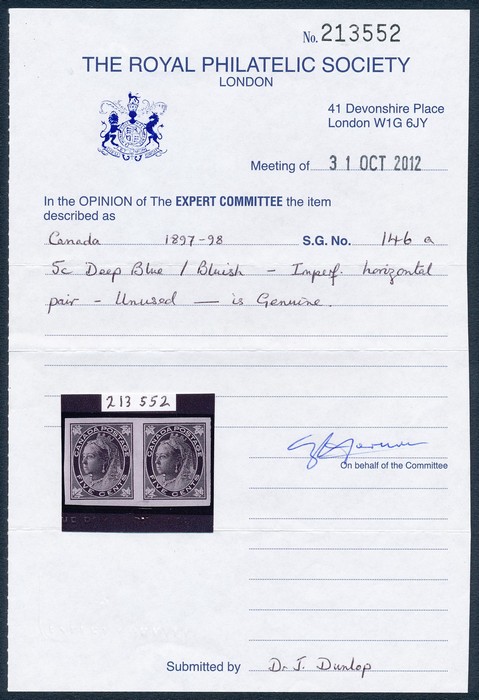 No. 213552
THE ROYAL PHILATELIC SOCIETY
LONDON
41 Devonshire Place
London W1G 6JY
Meeting of 31 OCT 2012
In the OPINION of The EXPERT COMMITTEE the item
described as
Canada 1897-98 S.G. No. 146 a
5c Deep Blue / Bluish - Imperf. horizontal
pair - Unused — is Genuine.
213 552
CANADA POSTAGE CANADA POSTAGE
FIVE CENTS FIVE CENTS
On behalf of the Committee
Submitted by Dr J. Dunlop